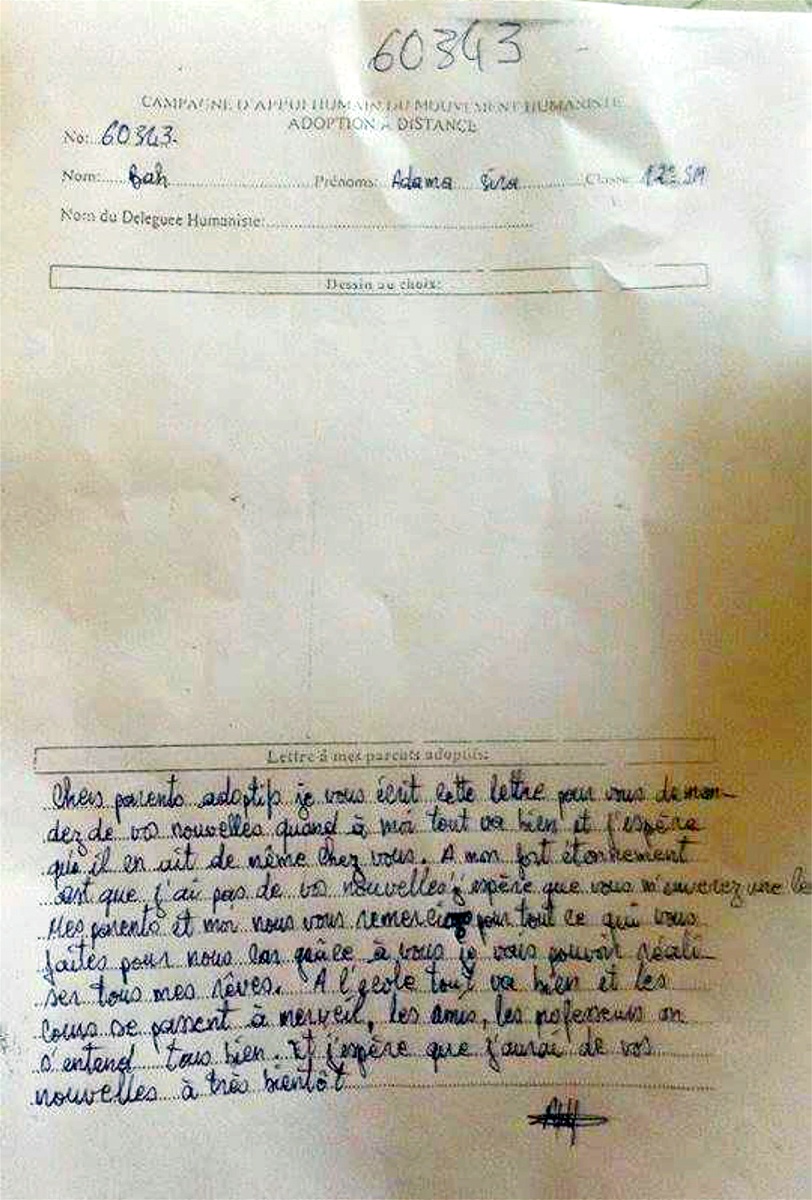 60343
CAMPAGNE D'APPUI HUMAIN DU MOUVEMENT HUMANISTE
ADOPTION A DISTANCE
No:..60343.
Nom:....Bah............Prénoms: Adama Sira........Classe 12e SM
Nom du Deleguee Humaniste:................................
Dessin au choix:
Lettre à mes parents adoptifs:
Chers parents adoptifs je vous écrit cette lettre pour vous deman-
dez de vos nouvelles quand à moi tout va bien et j'espère
qu'il en ait de même chez vous. A mon fort étonnement
est que j'ai pas de vos nouvelles j'espère que vous m'enverez une le
Mes parents et moi nous vous remercions pour tout ce qui vous
faites pour nous car grâce à vous je vais pouvoir réali-
ser tous mes rêves. A l'école tout va bien et les
cours se passent à merveil, les amis, les professeurs on
s'entend tous bien. Et j'espère que j'aurai de vos
nouvelles à très bientôt